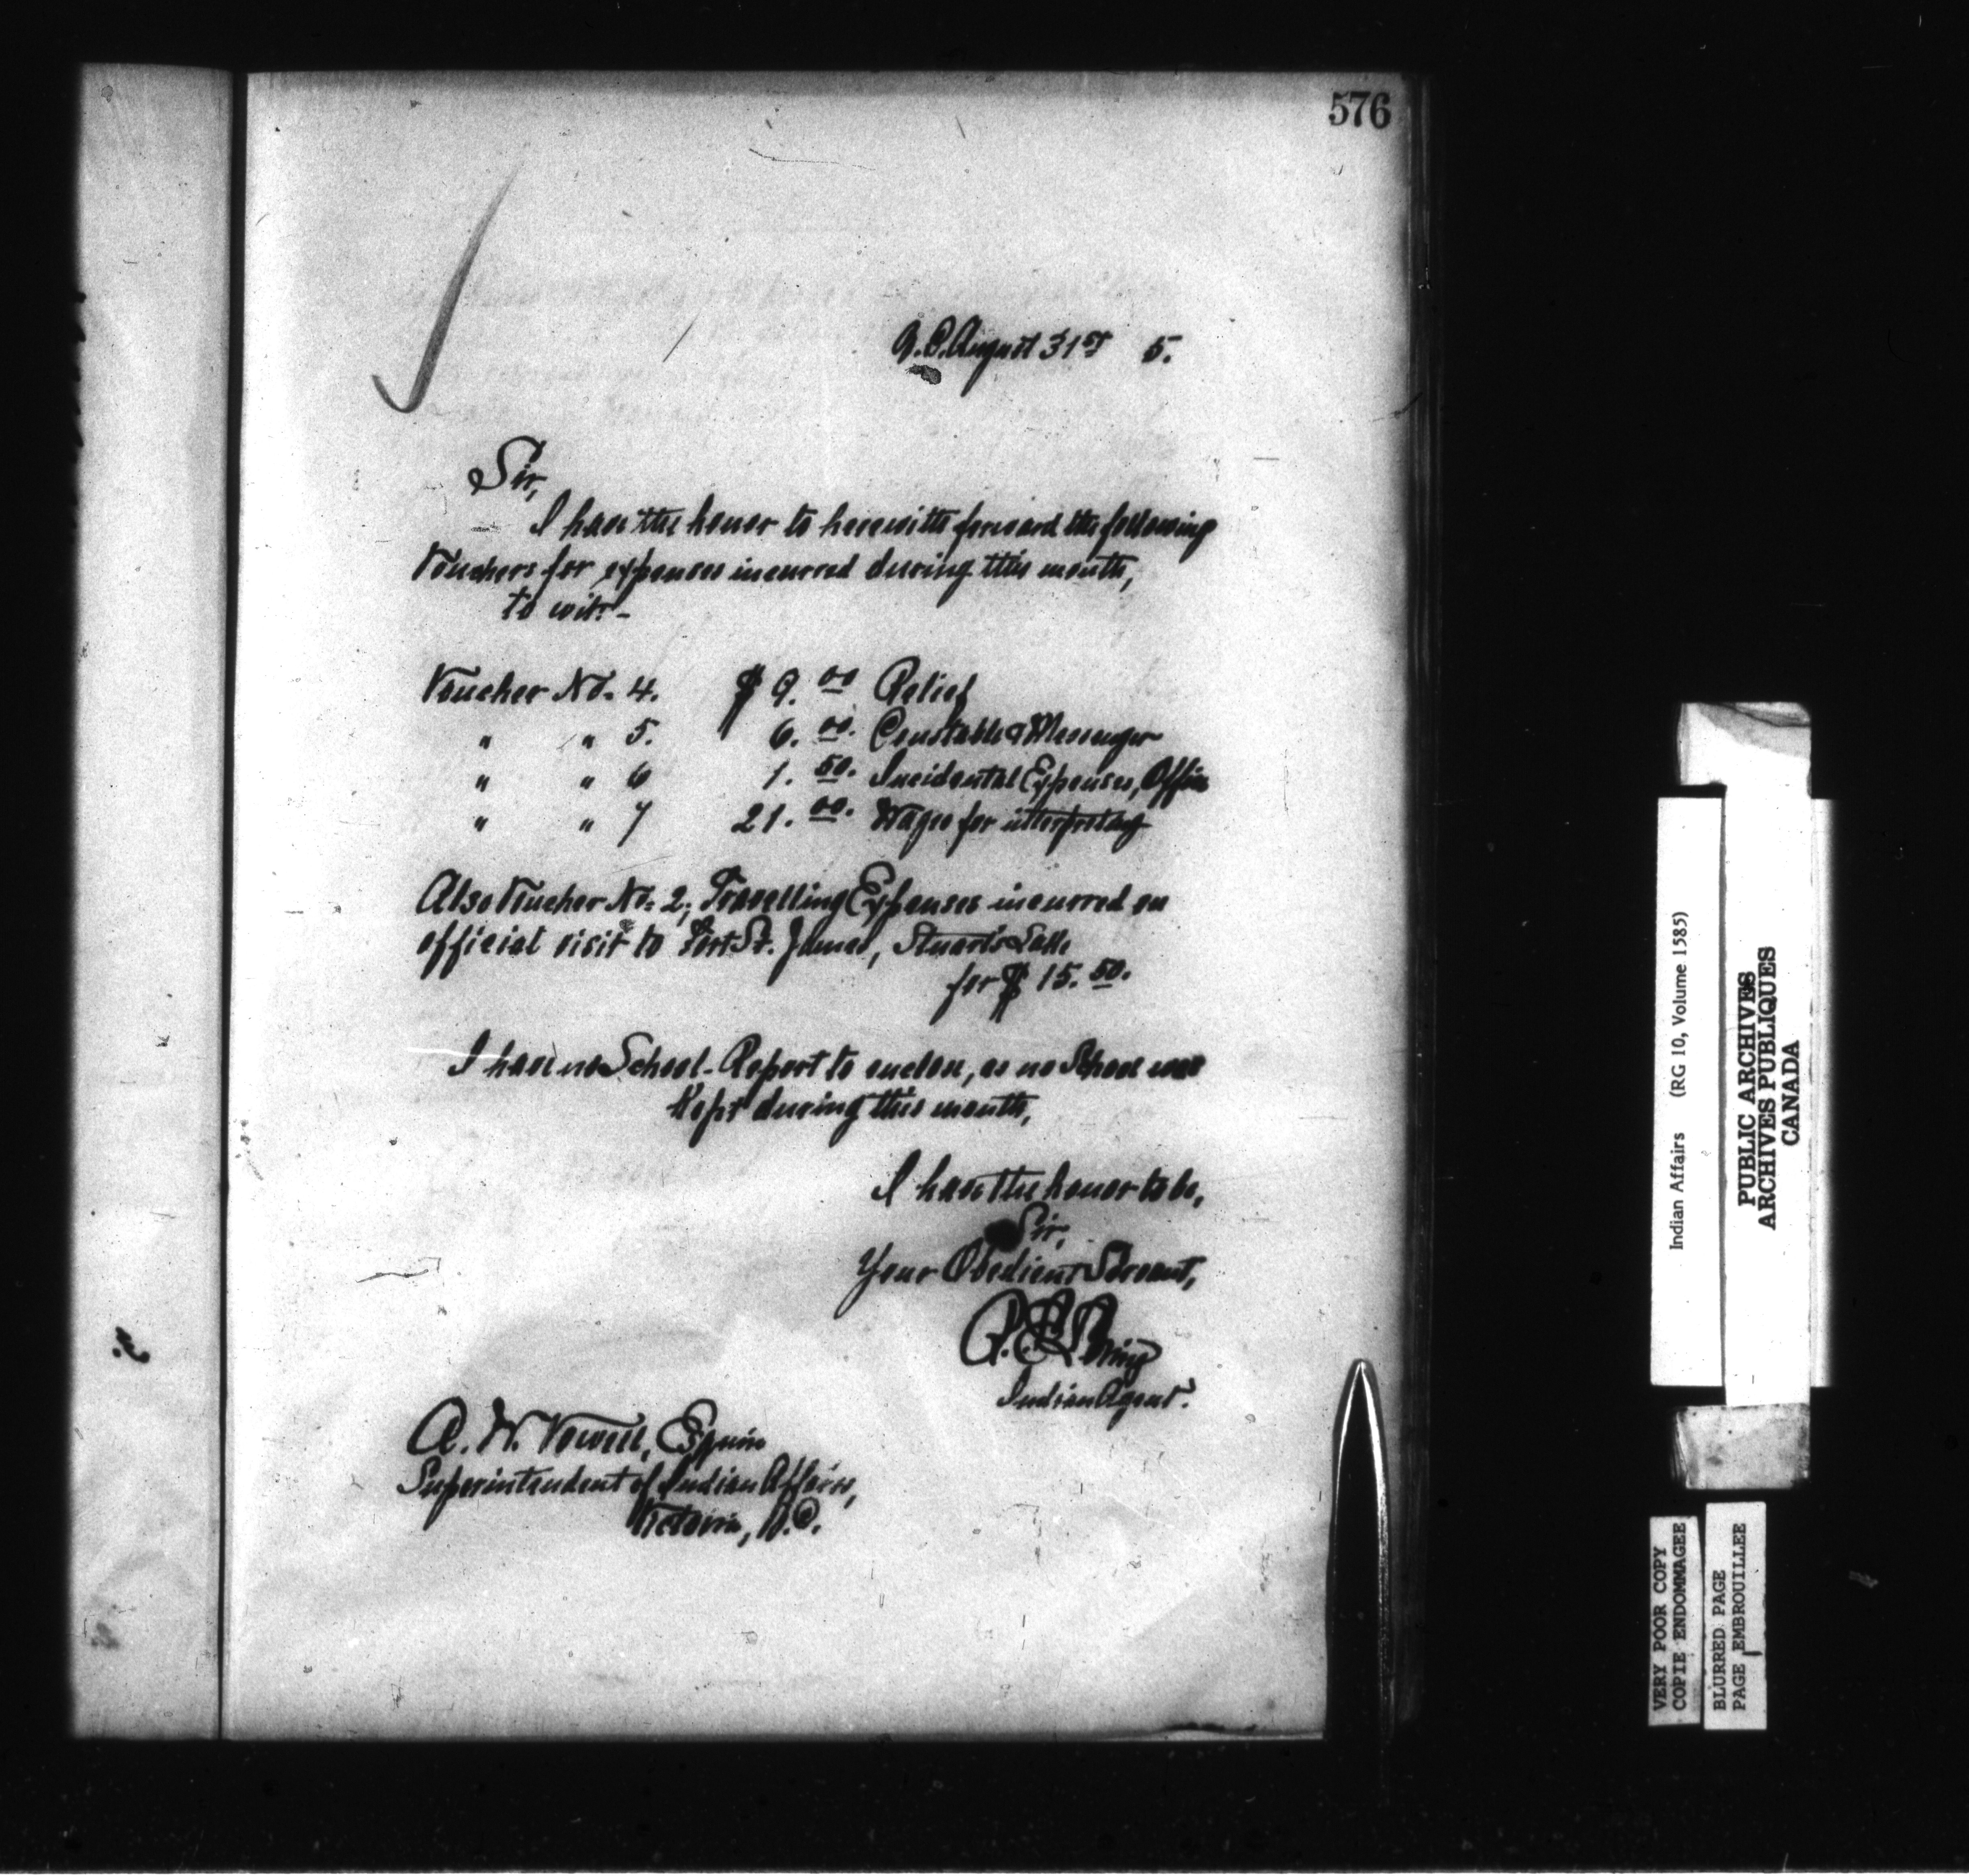 576
B.C. August 31st 5.
Sir,
I have the honor to herewith forward the following
Vouchers for expenses incurred during this month,
to wit:-
Voucher No. 4. $ 9. 00 Relief
" " 5. 6. 00. Constable & Messenger
" " 6 1. 50. Incidental Expenses, Office
" " 7 21. 00. Wages for interpreting
Also Voucher No. 2, Travelling Expenses incurred on
official visit to Fort St. James, Stuart's Lake
for $ 15. 50.
I have no School-Report to enclose, as no School was
Kept during this month,
I have the honor to be,
Sir,
Your Obedient Servant,
R. E. Loring
Indian Agent.
A. W. Vowell, Esquire
Superintendent of Indian Affairs,
Victoria, B.C.
Indian Affairs (RG 10, Volume 1585)
PUBLIC ARCHIVES
ARCHIVES PUBLIQUES
CANADA
VERY POOR COPY
COPIE ENDOMMAGEE
BLURRED PAGE
PAGE EMBROUILLEE